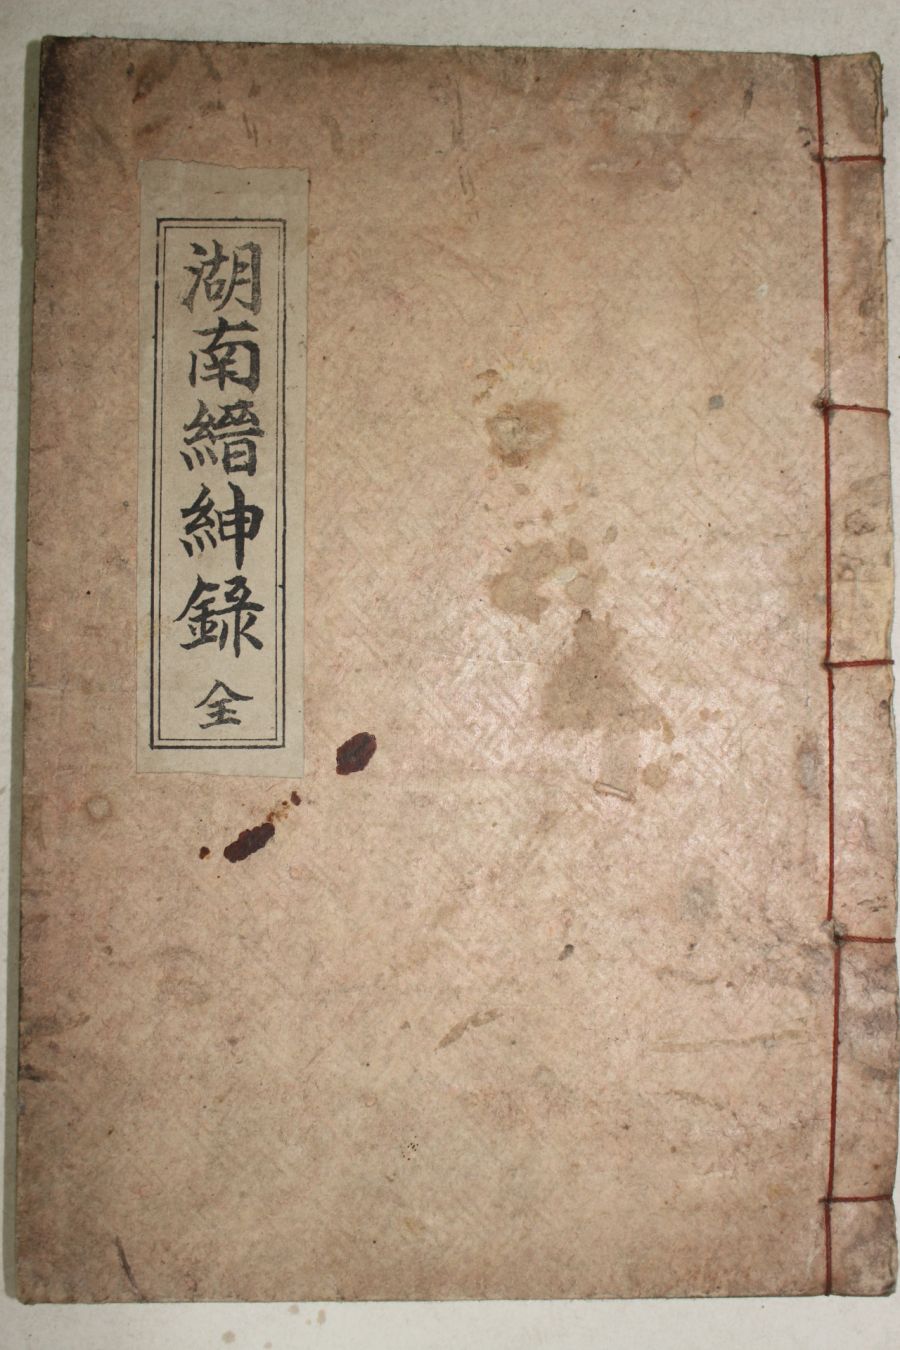 湖南縉紳錄 全